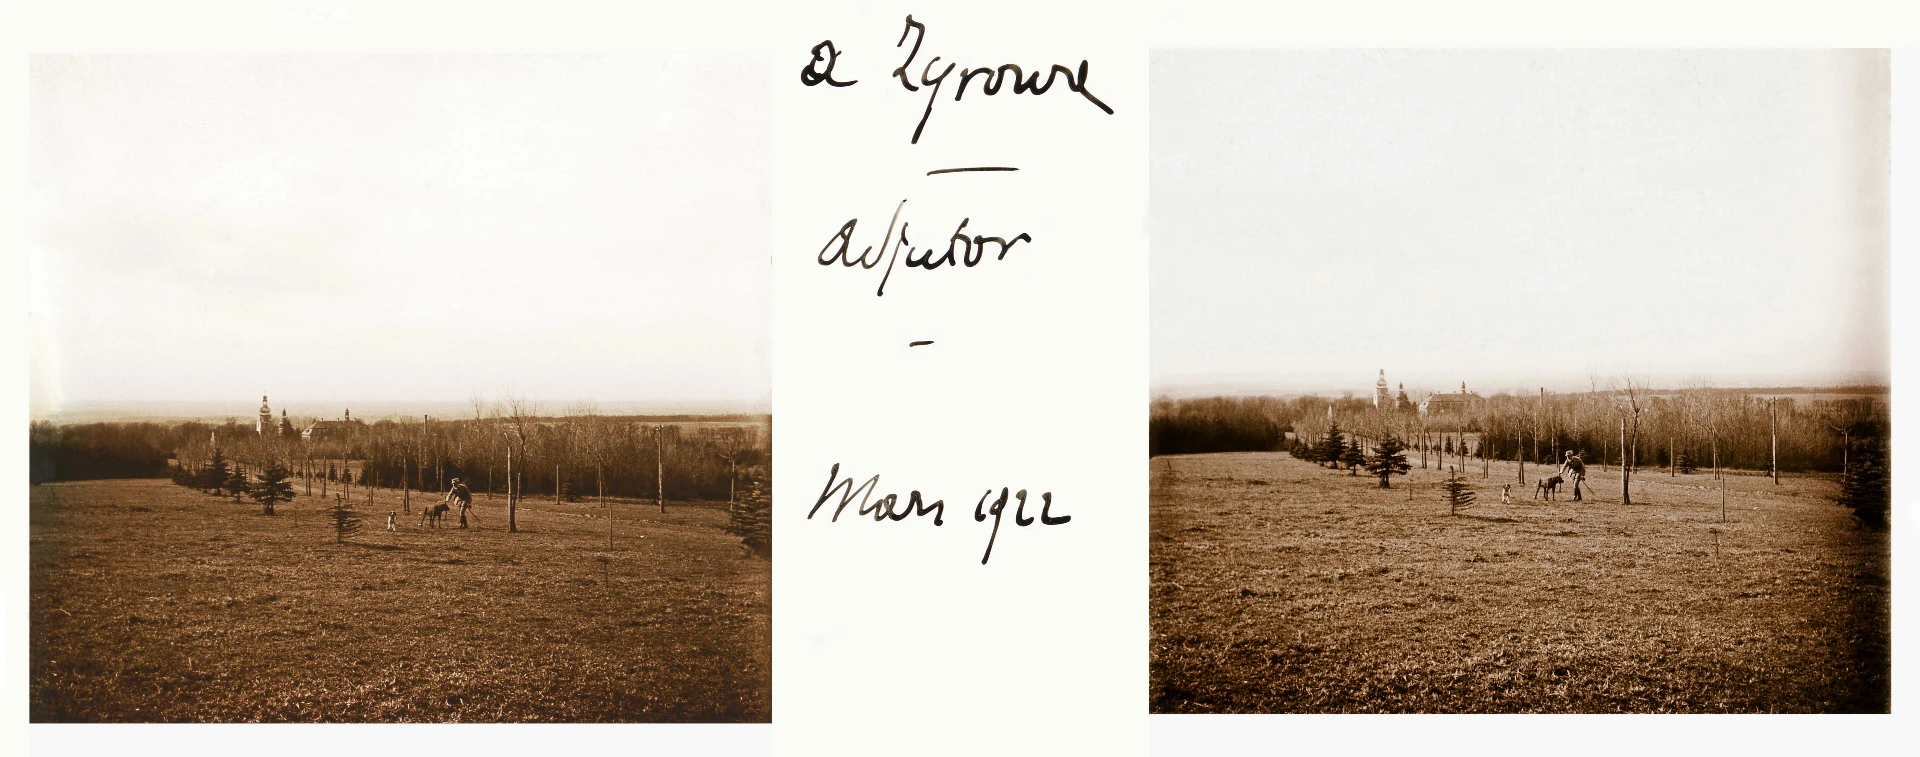 a Zyrowa
adjutor
Mars 1922